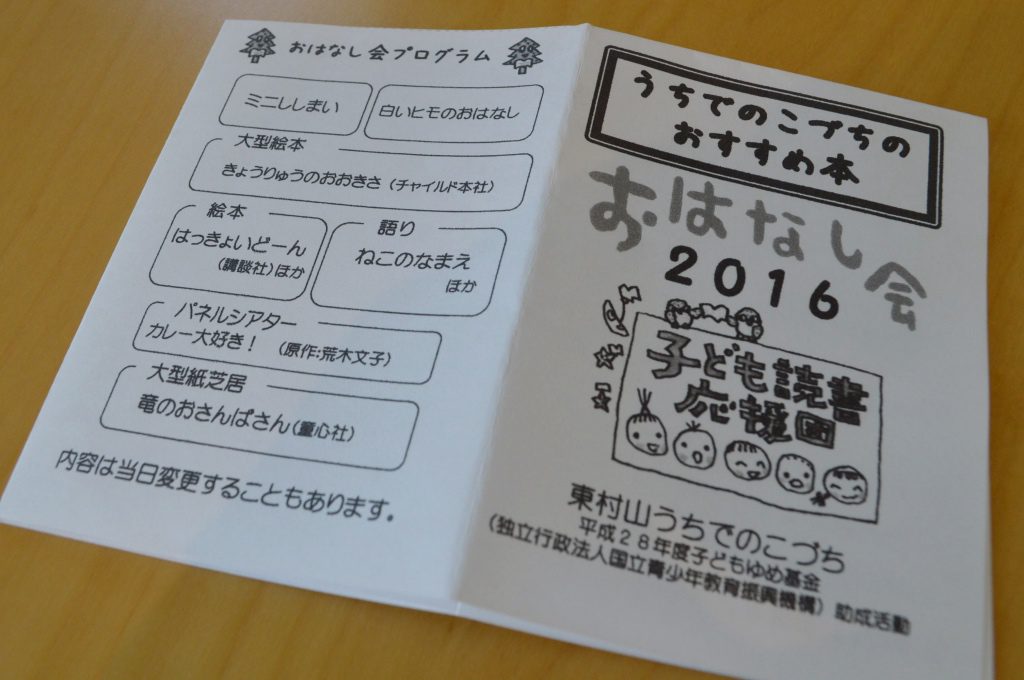 おはなし会プログラム
ミニししまい
白いヒモのおはなし
大型絵本
きょうりゅうのおおきさ（チャイルド本社）
絵本
はっきょいどーん
（講談社）ほか
語り
ねこのなまえ
ほか
パネルシアター
カレー大好き！（原作:荒木文子）
大型紙芝居
竜のおさんぱさん（童心社）
内容は当日変更することもあります。
うちでのこづちの
おすすめ本
おはなし会
2016
子ども読書
応援団
東村山うちでのこづち
平成２８年度子どもゆめ基金
（独立行政法人国立青少年教育振興機構）助成活動